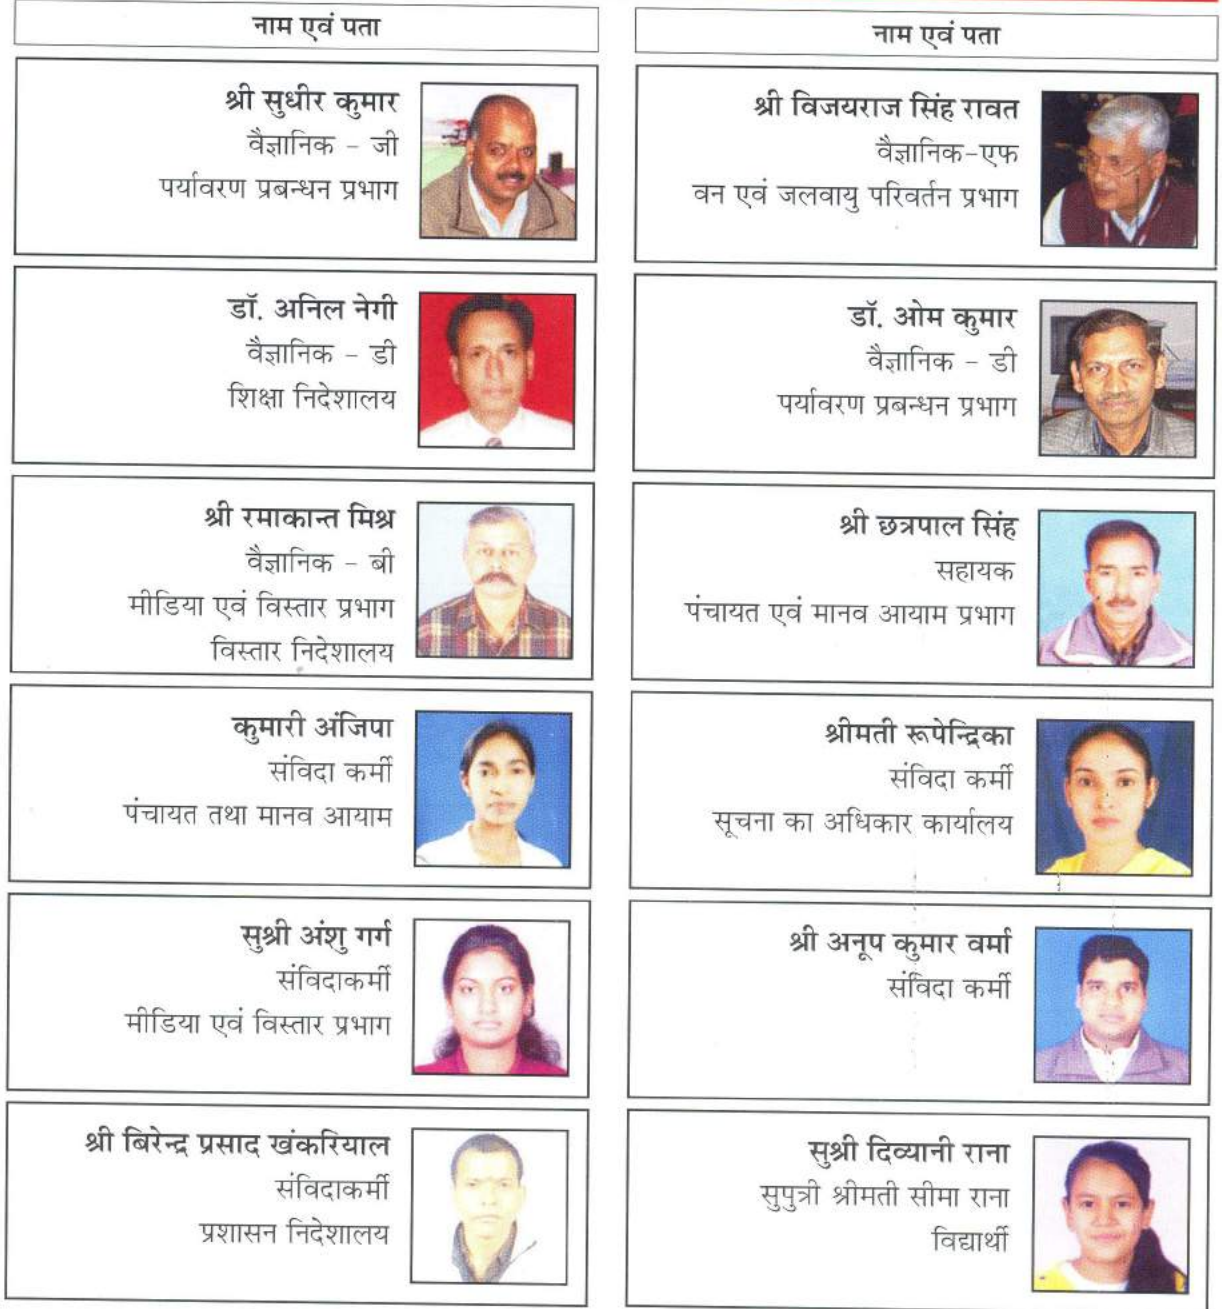 नाम एवं पता
श्री सुधीर कुमार
वैज्ञानिक - जी
पर्यावरण प्रबन्धन प्रभाग
डॉ. अनिल नेगी
वैज्ञानिक - डी
शिक्षा निदेशालय
श्री रमाकान्त मिश्र
वैज्ञानिक - बी
मीडिया एवं विस्तार प्रभाग
विस्तार निदेशालय
कुमारी अंजिपा
संविदा कर्मी
पंचायत तथा मानव आयाम
सुश्री अंशु गर्ग
संविदाकर्मी
मीडिया एवं विस्तार प्रभाग
श्री बिरेन्द्र प्रसाद खंकरियाल
संविदाकर्मी
प्रशासन निदेशालय
नाम एवं पता
श्री विजयराज सिंह रावत
वैज्ञानिक-एफ
वन एवं जलवायु परिवर्तन प्रभाग
डॉ. ओम कुमार
वैज्ञानिक - डी
पर्यावरण प्रबन्धन प्रभाग
श्री छत्रपाल सिंह
सहायक
पंचायत एवं मानव आयाम प्रभाग
श्रीमती रूपेन्द्रिका
संविदा कर्मी
सूचना का अधिकार कार्यालय
श्री अनूप कुमार वर्मा
संविदा कर्मी
सुश्री दिव्यानी राना
सुपुत्री श्रीमती सीमा राना
विद्यार्थी